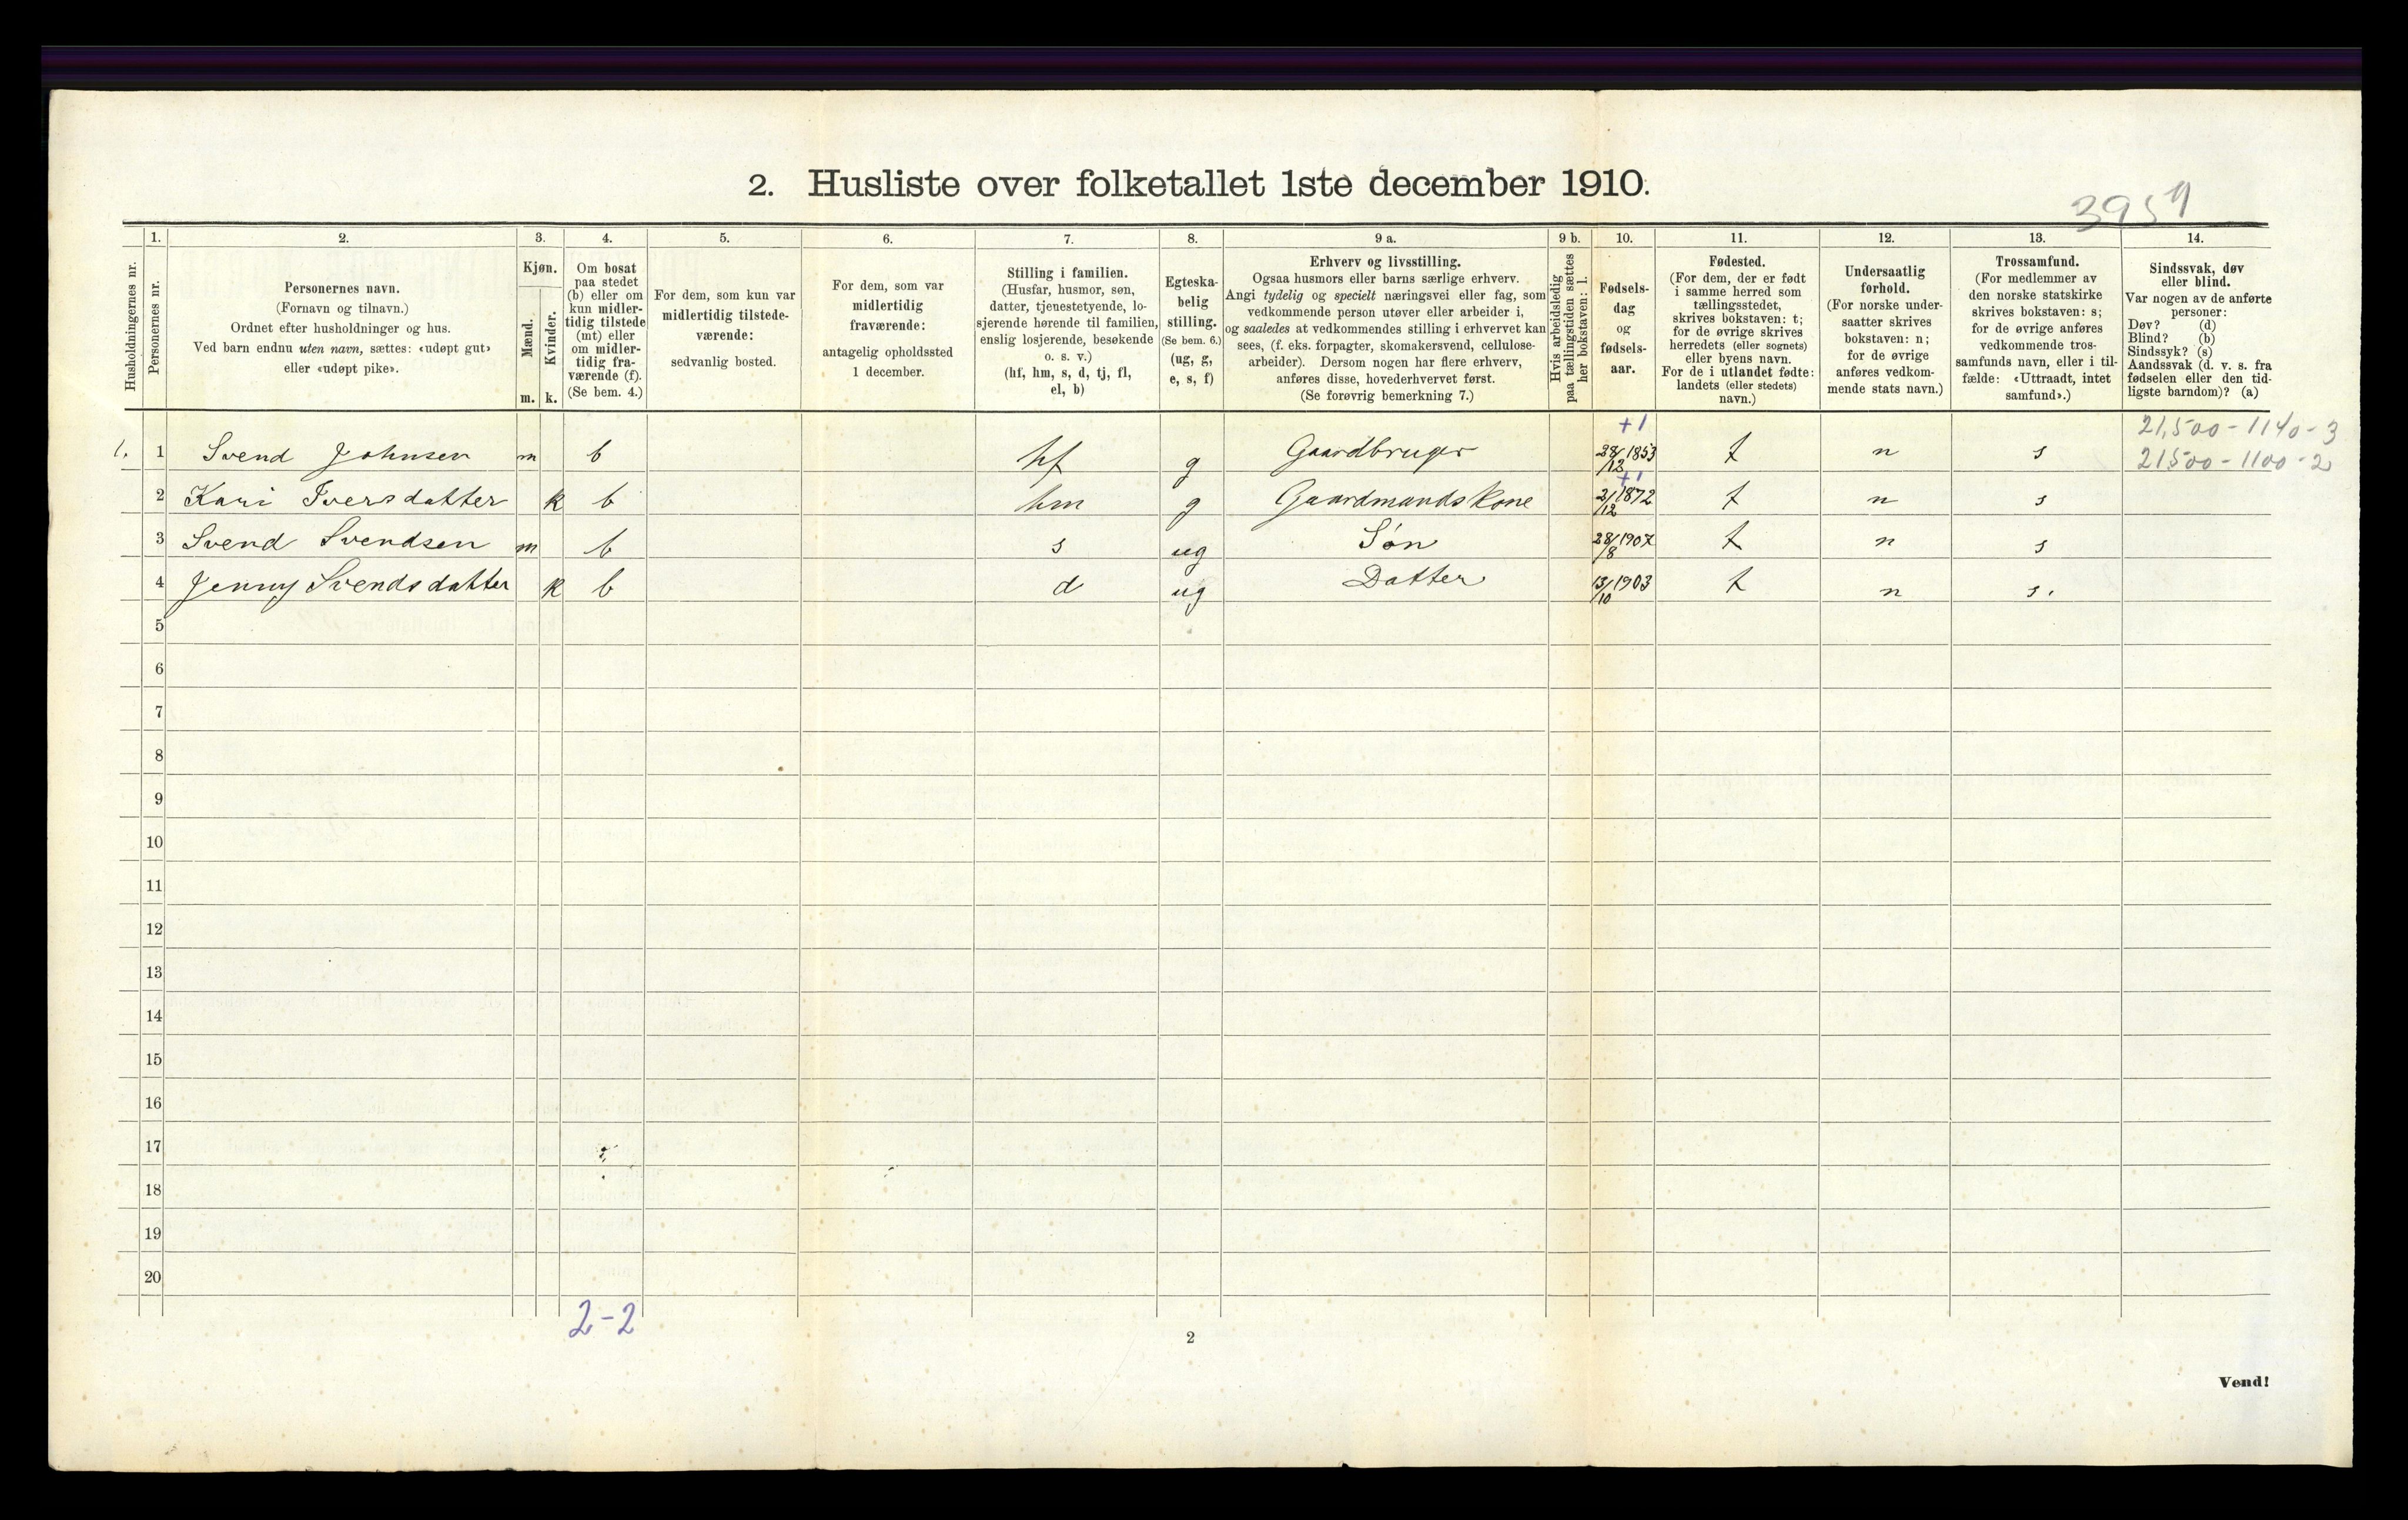 2. Husliste over folketallet 1ste december 1910.
3959
1. 2. 3. 4. 5. 6. 7. 8. 9 a. 9 b. 10. 11. 12. 13. 14.
Husholdningernes nr.
Personernes nr.
Personernes navn.
(Fornavn og tilnavn.)
Ordnet efter husholdninger og hus.
Ved barn endnu uten navn, sættes: «udøpt gut»
eller «udøpt pike».
Kjøn.
Mænd.
m.
Kvinder.
k.
Om bosat
paa stedet
(b) eller om
kun midler-
tidig tilstede
(mt) eller
om midler-
tidig fra-
værende (f).
(Se bem. 4.)
For dem, som kun var
midlertidig tilstede-
værende:
sedvanlig bosted.
For dem, som var
midlertidig
fraværende:
antagelig opholdssted
1 december.
Stilling i familien.
(Husfar, husmor, søn,
datter, tjenestetyende, lo-
sjerende hørende til familien,
enslig losjerende, besøkende
o. s. v.)
(hf, hm, s, d, tj, fl,
el, b)
Egteska-
belig
stilling.
(Se bem. 6.)
(ug, g,
e, s, f)
Erhverv og livsstilling.
Ogsaa husmors eller barns særlige erhverv.
Angi tydelig og specielt næringsvei eller fag, som
vedkommende person utøver eller arbeider i,
og saaledes at vedkommendes stilling i erhvervet kan
sees, (f. eks. forpagter, skomakersvend, cellulose-
arbeider). Dersom nogen har flere erhverv,
anføres disse, hovederhvervet først.
(Se forøvrig bemerkning 7.)
Hvis arbeidsledig
paa tællingstiden sættes
her bokstaven: l.
Fødsels-
dag
og
fødsels-
aar.
Fødested.
(For dem, der er født
i samme herred som
tællingsstedet,
skrives bokstaven: t;
for de øvrige skrives
herredets (eller sognets)
eller byens navn.
For de i utlandet fødte:
landets (eller stedets)
navn.)
Undersaatlig
forhold.
(For norske under-
saatter skrives
bokstaven: n;
for de øvrige
anføres vedkom-
mende stats navn.)
Trossamfund.
(For medlemmer av
den norske statskirke
skrives bokstaven: s;
for de øvrige anføres
vedkommende tros-
samfunds navn, eller i til-
fælde: «Uttraadt, intet
samfund».)
Sindssvak, døv
eller blind.
Var nogen av de anførte
personer:
Døv? (d)
Blind? (b)
Sindssyk? (s)
Aandssvak (d. v. s. fra
fødselen eller den tid-
ligste barndom)? (a)
+1 21,500 - 1140 - 3
1. 1 Svend Johnsen m b hf g Gaardbruger 28/12 1853 t n s 21500 - 1100 - 2
+1
2 Kari Iversdatter k b hm g Gaardmandskone 2/12 1872 t n s
3 Svend Svendsen m b s ug Søn 28/8 1907 t n s
4 Jenny Svendsdatter k b d ug Datter 13/10 1903 t n s.
5
6
7
8
9
10
11
12
13
14
15
16
17
18
19
20
2-2
2
Vend!